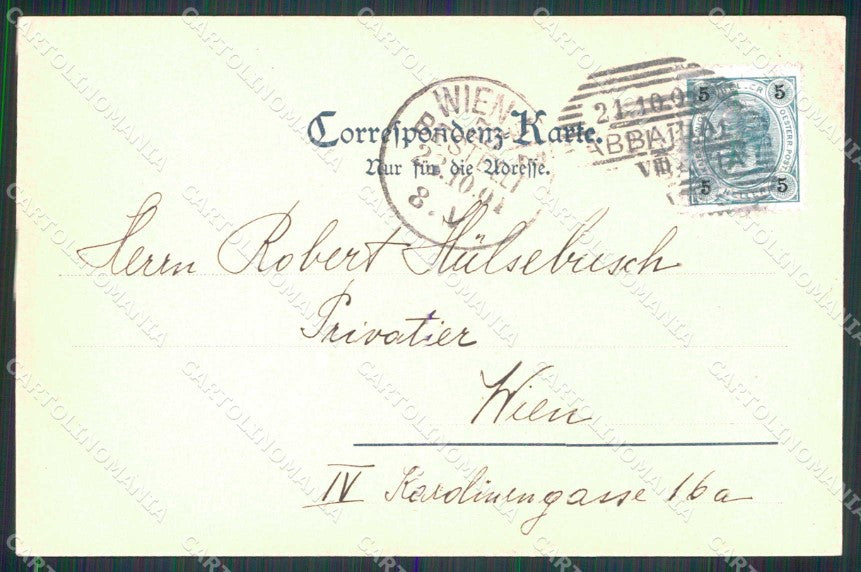 Correspondenz-Karte.
Nur für die Adresse.
WIEN
BESTELLT
21.10.9
ABBAZIA
VIII
5 5
5 5
Herrn Robert Hülsebusch
Privatier
Wien
IV Karolinengasse 16a
CARTOLINOMANIA